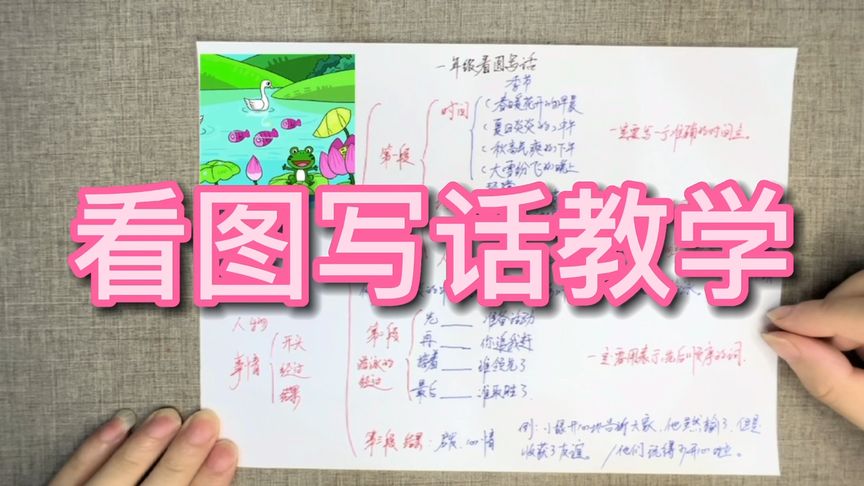 一年级看图写话
季节
时间
春暖花开的早晨
夏日炎炎的中午
一定要写一个准确的时间点。
第一段
秋高气爽的下午
大雪纷飞的晚上
看图写话教学
人物
事情
开头
经过
结果
第二段
游泳的
经过
先 准备活动
再 你追我赶
接着 谁领先了
最后 谁取胜了
一定要用表示先后顺序的词
第三段 结果：
心情
例：小 开心地告诉大家，他虽然输了，但是
收获了友谊。/他们玩得 开心 。